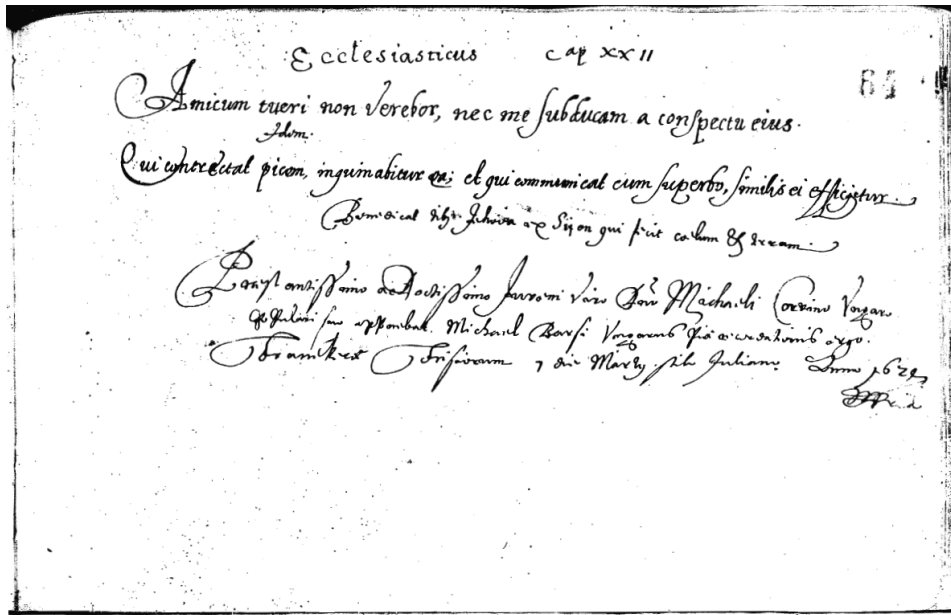 Ecclesiasticus Cap XXII
64
Amicum tueri non verebor, nec me subducam a conspectu eius.
Idem.
Qui contrectat picem, inquinabitur ea; et qui communicat cum superbo, similis ei efficietur.
Benedicat tibi Jehova ex Sijon qui fecit coelum & terram.
Praestantissimo ac Doctissimo Juveni Viro Dno Michaeli Corvino Ungaro
Populari suo apponebat Michael Barsi Ungarus Piae recordationis ergo.
Franekerae Frisiorum 7 die Martij stilo Juliano Anno